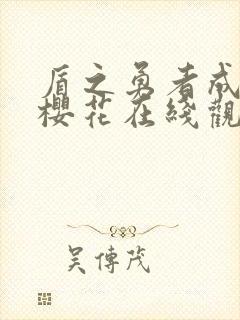 盾之勇者成
櫻花在綫觀
吴傳茂